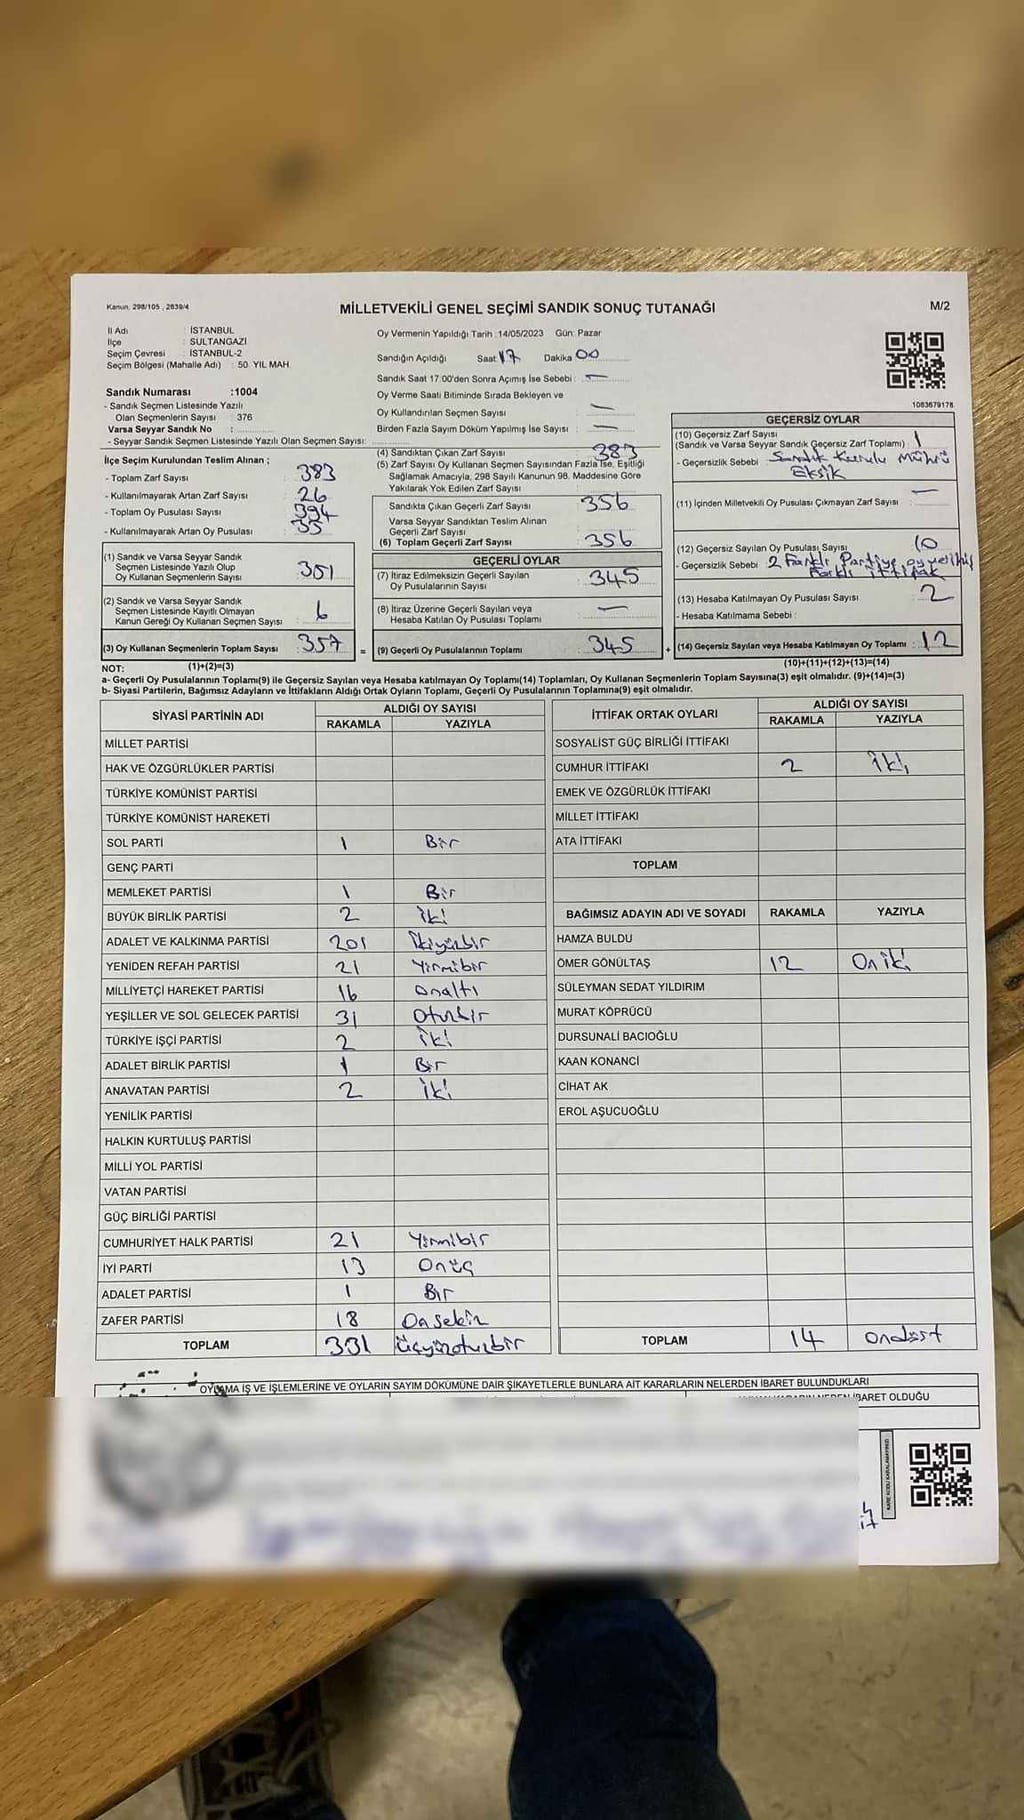 Kanun, 298/105 , 2839/4
MİLLETVEKİLİ GENEL SEÇİMİ SANDIK SONUÇ TUTANAĞI
M/2
İl Adı : İSTANBUL
İlçe : SULTANGAZİ
Seçim Çevresi : İSTANBUL-2
Seçim Bölgesi (Mahalle Adı) : 50. YIL MAH.
Sandık Numarası :1004
- Sandık Seçmen Listesinde Yazılı
Olan Seçmenlerin Sayısı : 376
Varsa Seyyar Sandık No :
- Seyyar Sandık Seçmen Listesinde Yazılı Olan Seçmen Sayısı:
Oy Vermenin Yapıldığı Tarih :14/05/2023 Gün: Pazar
Sandığın Açıldığı Saat 17 Dakika 00
Sandık Saat 17:00'den Sonra Açımış İse Sebebi : —
Oy Verme Saati Bitiminde Sırada Bekleyen ve
Oy Kullandırılan Seçmen Sayısı : —
Birden Fazla Sayım Döküm Yapılmış İse Sayısı : —
1083679178
İlçe Seçim Kurulundan Teslim Alınan ;
- Toplam Zarf Sayısı : 383
- Kullanılmayarak Artan Zarf Sayısı : 26
- Toplam Oy Pusulası Sayısı : 394
- Kullanılmayarak Artan Oy Pusulası : 35
(1) Sandık ve Varsa Seyyar Sandık
Seçmen Listesinde Yazılı Olup
Oy Kullanan Seçmenlerin Sayısı : 351
(2) Sandık ve Varsa Seyyar Sandık
Seçmen Listesinde Kayıtlı Olmayan
Kanun Gereği Oy Kullanan Seçmen Sayısı : 6
(3) Oy Kullanan Seçmenlerin Toplam Sayısı : 357
(4) Sandıktan Çıkan Zarf Sayısı : 383
(5) Zarf Sayısı Oy Kullanan Seçmen Sayısından Fazla İse, Eşitliği
Sağlamak Amacıyla, 298 Sayılı Kanunun 98. Maddesine Göre
Yakılarak Yok Edilen Zarf Sayısı :
Sandıkta Çıkan Geçerli Zarf Sayısı : 356
Varsa Seyyar Sandıktan Teslim Alınan
Geçerli Zarf Sayısı :
(6) Toplam Geçerli Zarf Sayısı : 356
GEÇERLİ OYLAR
(7) İtiraz Edilmeksizin Geçerli Sayılan
Oy Pusulalarının Sayısı : 345
(8) İtiraz Üzerine Geçerli Sayılan veya
Hesaba Katılan Oy Pusulası Toplamı : —
= (9) Geçerli Oy Pusulalarının Toplamı : 345
GEÇERSİZ OYLAR
(10) Geçersiz Zarf Sayısı
(Sandık ve Varsa Seyyar Sandık Geçersiz Zarf Toplamı) : 1
- Geçersizlik Sebebi : Sandık Kurulu Mührü
Eksik
(11) İçinden Milletvekili Oy Pusulası Çıkmayan Zarf Sayısı : —
(12) Geçersiz Sayılan Oy Pusulası Sayısı : 10
- Geçersizlik Sebebi : 2 Farklı Partiye oy
Farklı ittifak
(13) Hesaba Katılmayan Oy Pusulası Sayısı : 2
- Hesaba Katılmama Sebebi :
+ (14) Geçersiz Sayılan veya Hesaba Katılmayan Oy Toplamı : 12
NOT: (1)+(2)=(3)
(10)+(11)+(12)+(13)=(14)
a- Geçerli Oy Pusulalarının Toplamı(9) ile Geçersiz Sayılan veya Hesaba katılmayan Oy Toplamı(14) Toplamları, Oy Kullanan Seçmenlerin Toplam Sayısına(3) eşit olmalıdır. (9)+(14)=(3)
b- Siyasi Partilerin, Bağımsız Adayların ve İttifakların Aldığı Ortak Oyların Toplamı, Geçerli Oy Pusulalarının Toplamına(9) eşit olmalıdır.
SİYASİ PARTİNİN ADI ALDIĞI OY SAYISI
RAKAMLA YAZIYLA
MİLLET PARTİSİ
HAK VE ÖZGÜRLÜKLER PARTİSİ
TÜRKİYE KOMÜNİST PARTİSİ
TÜRKİYE KOMÜNİST HAREKETİ
SOL PARTİ 1 Bir
GENÇ PARTİ
MEMLEKET PARTİSİ 1 Bir
BÜYÜK BİRLİK PARTİSİ 2 İki
ADALET VE KALKINMA PARTİSİ 201 İkiyüzbir
YENİDEN REFAH PARTİSİ 21 Yirmibir
MİLLİYETÇİ HAREKET PARTİSİ 16 Onaltı
YEŞİLLER VE SOL GELECEK PARTİSİ 31 Otuzbir
TÜRKİYE İŞÇİ PARTİSİ 2 İki
ADALET BİRLİK PARTİSİ 1 Bir
ANAVATAN PARTİSİ 2 İki
YENİLİK PARTİSİ
HALKIN KURTULUŞ PARTİSİ
MİLLİ YOL PARTİSİ
VATAN PARTİSİ
GÜÇ BİRLİĞİ PARTİSİ
CUMHURİYET HALK PARTİSİ 21 Yirmibir
İYİ PARTİ 13 Onüç
ADALET PARTİSİ 1 Bir
ZAFER PARTİSİ 18 Onsekiz
TOPLAM 331 Üçyüzotuzbir
İTTİFAK ORTAK OYLARI ALDIĞI OY SAYISI
RAKAMLA YAZIYLA
SOSYALİST GÜÇ BİRLİĞİ İTTİFAKI
CUMHUR İTTİFAKI 2 İki
EMEK VE ÖZGÜRLÜK İTTİFAKI
MİLLET İTTİFAKI
ATA İTTİFAKI
TOPLAM
BAĞIMSIZ ADAYIN ADI VE SOYADI RAKAMLA YAZIYLA
HAMZA BULDU
ÖMER GÖNÜLTAŞ 12 Oniki
SÜLEYMAN SEDAT YILDIRIM
MURAT KÖPRÜCÜ
DURSUNALİ BACIOĞLU
KAAN KONANCİ
CİHAT AK
EROL AŞUCUOĞLU
TOPLAM 14 Ondört
OYLAMA İŞ VE İŞLEMLERİNE VE OYLARIN SAYIM DÖKÜMÜNE DAİR ŞİKAYETLERLE BUNLARA AİT KARARLARIN NELERDEN İBARET BULUNDUKLARI
KARARIN NEDEN İBARET OLDUĞU